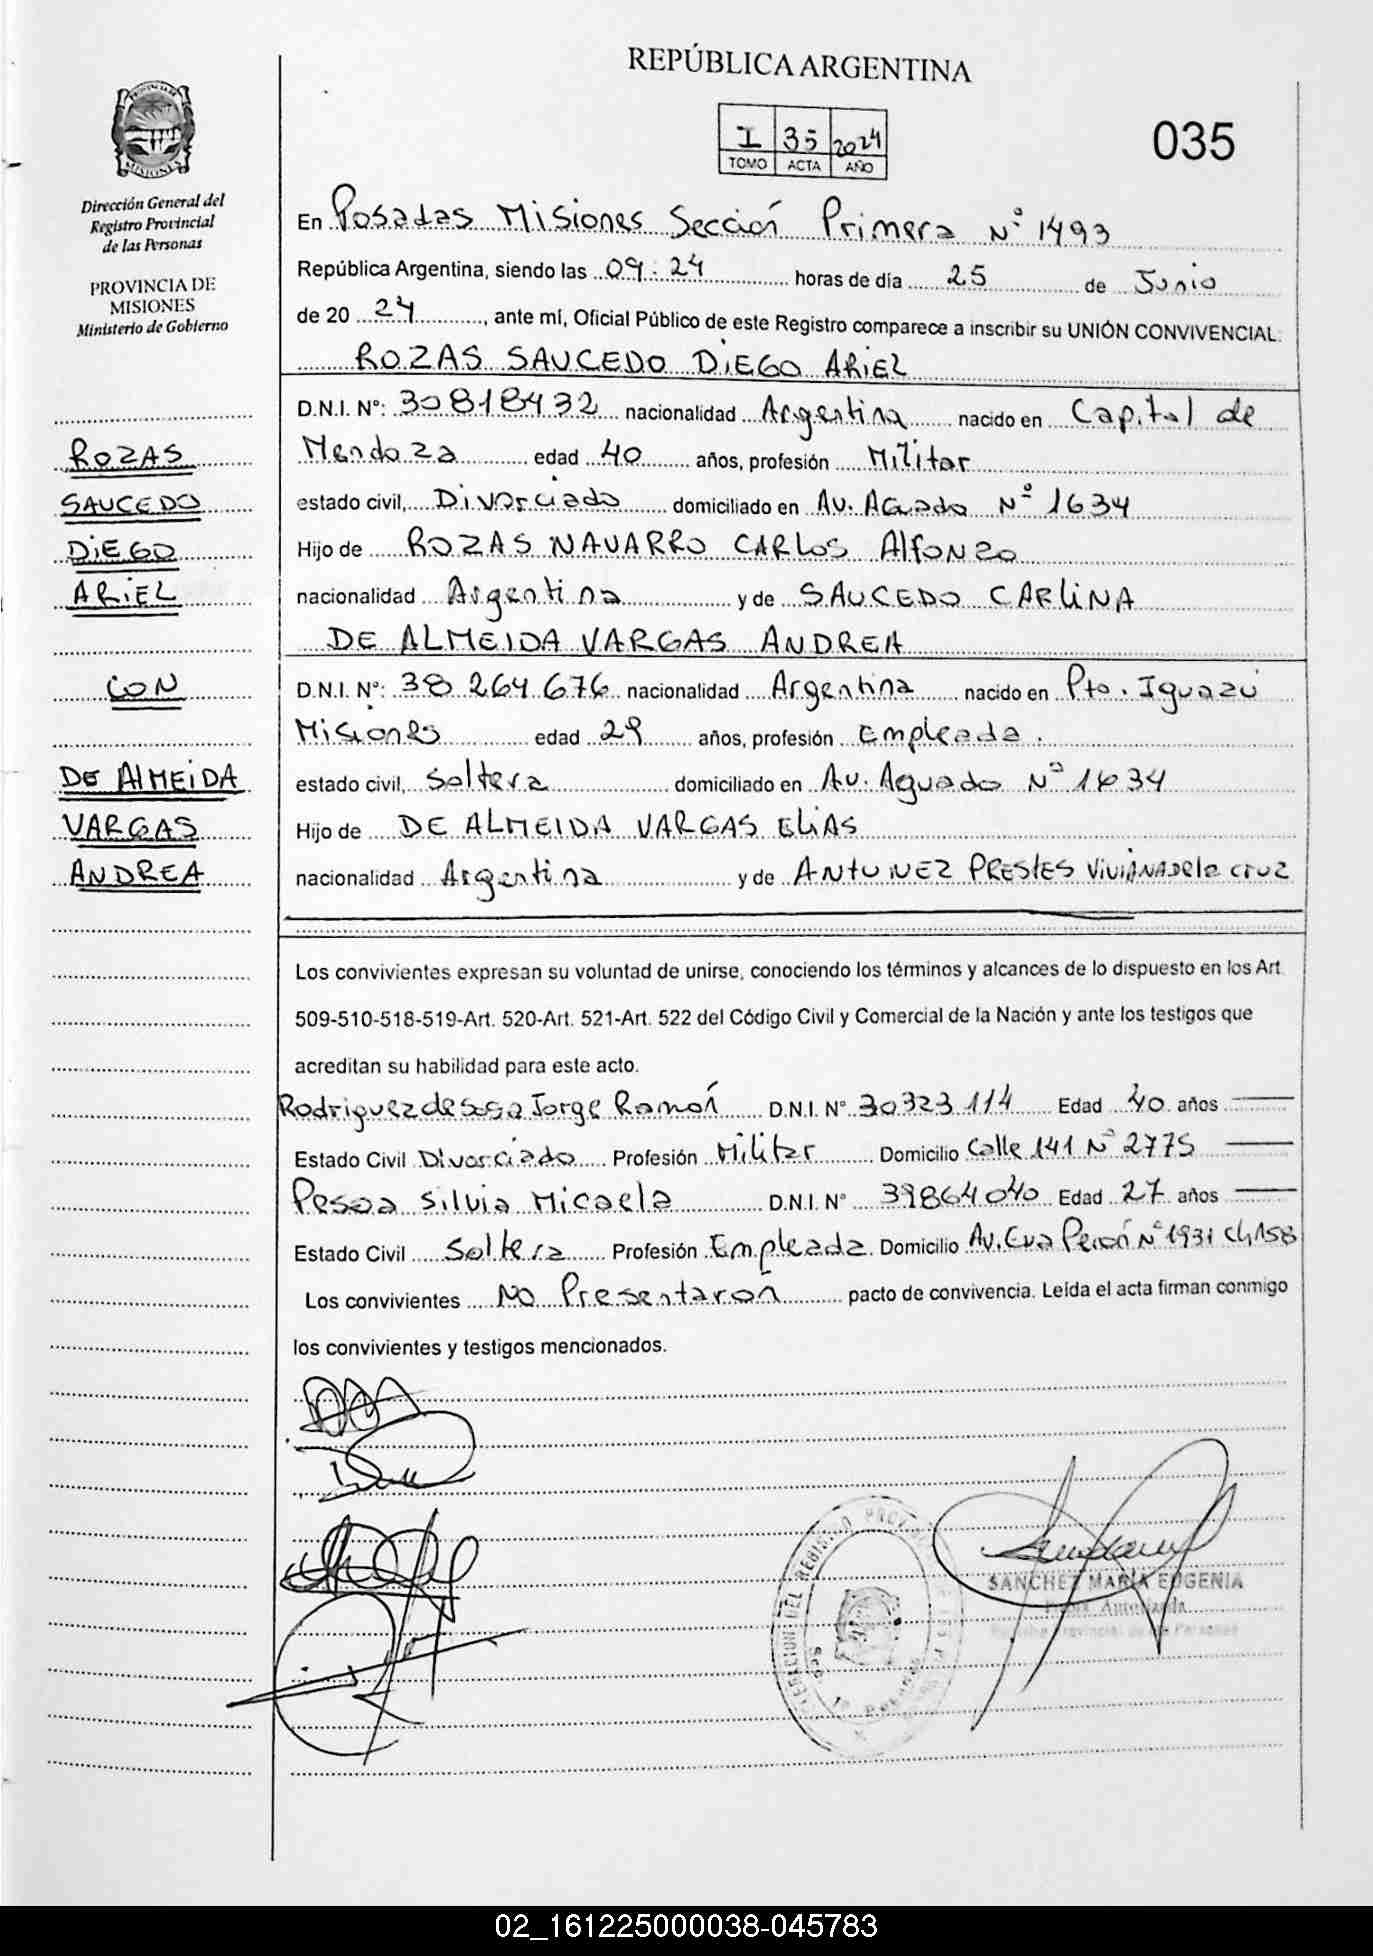 REPÚBLICA ARGENTINA
I 35 2024
TOMO ACTA AÑO
035
PROVINCIA DE
MISIONES
Dirección General del
Registro Provincial
de las Personas
PROVINCIA DE
MISIONES
Ministerio de Gobierno
ROZAS
SAUCEDO
DIEGO
ARIEL
CON
DE ALMEIDA
VARGAS
ANDREA
En Posadas Misiones Sección Primera Nº 1493
República Argentina, siendo las 09:24 horas de día 25 de Junio
de 20 24, ante mí, Oficial Público de este Registro comparece a inscribir su UNIÓN CONVIVENCIAL:
ROZAS SAUCEDO DIEGO ARIEL
D.N.I. Nº: 30818432 nacionalidad Argentina nacido en Capital de
Mendoza edad 40 años, profesión Militar
estado civil, Divorciado domiciliado en Av. Aguado Nº 1634
Hijo de ROZAS NAVARRO CARLOS Alfonzo
nacionalidad Argentina y de SAUCEDO CARLINA
DE ALMEIDA VARGAS ANDREA
D.N.I. Nº: 38 264 676 nacionalidad Argentina nacido en Pto. Iguazú
Misiones edad 29 años, profesión Empleada.
estado civil, Soltera domiciliado en Av. Aguado Nº 1634
Hijo de DE ALMEIDA VARGAS ELIAS
nacionalidad Argentina y de ANTUNEZ PRESTES VIVIANA de la cruz
Los convivientes expresan su voluntad de unirse, conociendo los términos y alcances de lo dispuesto en los Art.
509-510-518-519-Art. 520-Art. 521-Art. 522 del Código Civil y Comercial de la Nación y ante los testigos que
acreditan su habilidad para este acto.
Rodriguez de Sosa Jorge Ramón D.N.I. Nº 30323 114 Edad 40 años
Estado Civil Divorciado Profesión Militar Domicilio Calle 141 Nº 2775
Pesoa Silvia Micaela D.N.I. Nº 39864040 Edad 27 años
Estado Civil Soltera Profesión Empleada Domicilio Av. Eva Perón Nº 1931 ch 158
Los convivientes No Presentaron pacto de convivencia. Leída el acta firman conmigo
los convivientes y testigos mencionados.
SANCHEZ MARÍA EUGENIA
Registro Provincial de las Personas
02_161225000038-045783